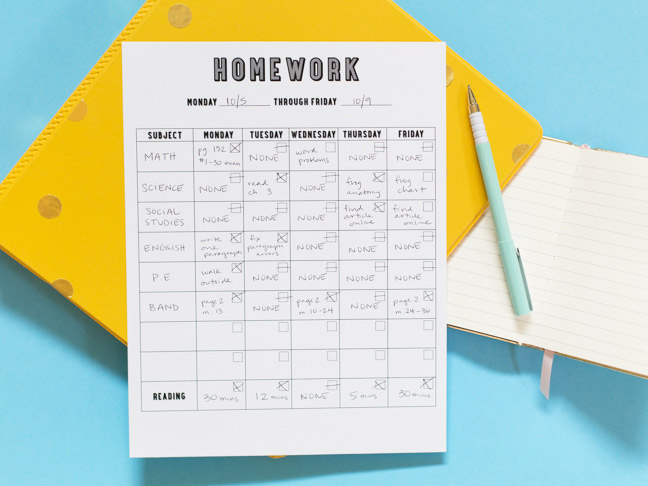 HOMEWORK
MONDAY 10/5 THROUGH FRIDAY 10/9
SUBJECT MONDAY TUESDAY WEDNESDAY THURSDAY FRIDAY
MATH
pg. 132
#1-30 even
NONE
word
problems
NONE
NONE
SCIENCE
NONE
read
ch. 3
NONE
frog
anatomy
frog
chart
SOCIAL
STUDIES
NONE
NONE
NONE
find
article
online
find
article
online
ENGLISH
write
one
paragraph
fix
paragraph
errors
NONE
NONE
NONE
P.E.
walk
outside
NONE
NONE
NONE
NONE
BAND
page 2
m. 13
NONE
page 2
m. 10-24
NONE
page 2
m. 24-36
READING
30 mins
12 mins
NONE
5 mins
30 mins